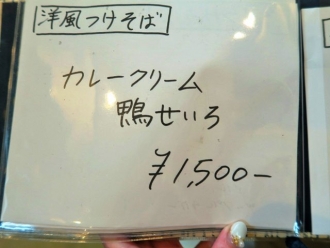 洋風つけそば
カレークリーム
鴨せいろ
¥1,500-